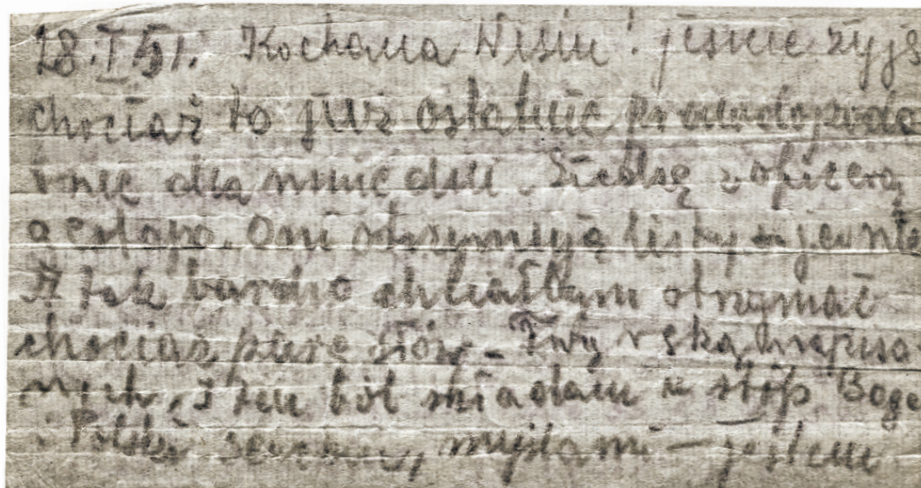 18.I 51. Kochana Wisiu! jeszcze żyję
chociaż to już ostatnie prawdopodo
bnie dla mnie dni. Siedzę z oficerą
gestapo. Oni otrzymują listy a ja nie
A tak bardzo chciałbym otrzymać
chociaż parę słów - Twą ręką napisa-
nych. I ten ból składam u stóp Boga
i Polski sercem, myślami - jestem